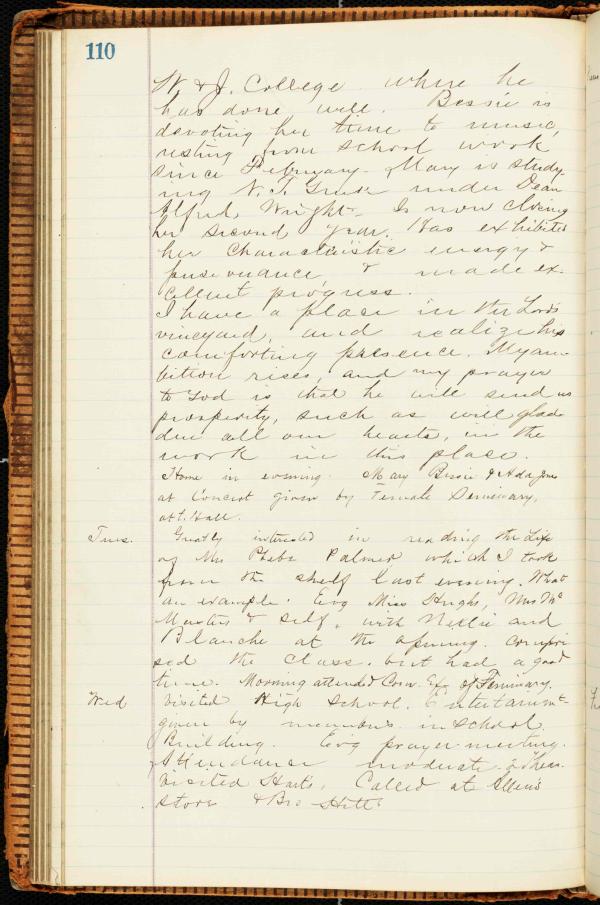 110
W & J. College where he
has done well. Bessie is
devoting her time to music,
resting from school work
since February. Mary is study-
ing N. T. Greek under Dean
Alfred Wright. Is now closing
her second year. Has exhibited
her characteristic energy &
perseverance & made ex-
cellent progress.
I have a place in the Lord's
vineyard, and realize his
comforting presence. My am-
bition rises, and my prayer
to God is that he will send us
prosperity, such as will glad-
den all our hearts, in the
work in this place.
Home in evening. Mary Bessie & Ada Jones
at Concert given by Female Seminary,
at Hall.
Tues. Greatly interested in reading the Life
of Mrs Phebe Palmer which I took
from the shelf last evening. What
an example. Evg Miss Hughs, Mrs Mc
Masters & self, with Nellie and
Blanche at the opening compri
sed the class. but had a good
time. Morning attended Com. Ex. of Seminary.
Wed Visited High School. Entertainmt
given by members in School
Building. Evg prayer meeting.
Attendance moderate.
Visited Hart's, Called at Allen's
Store & Bro Hill